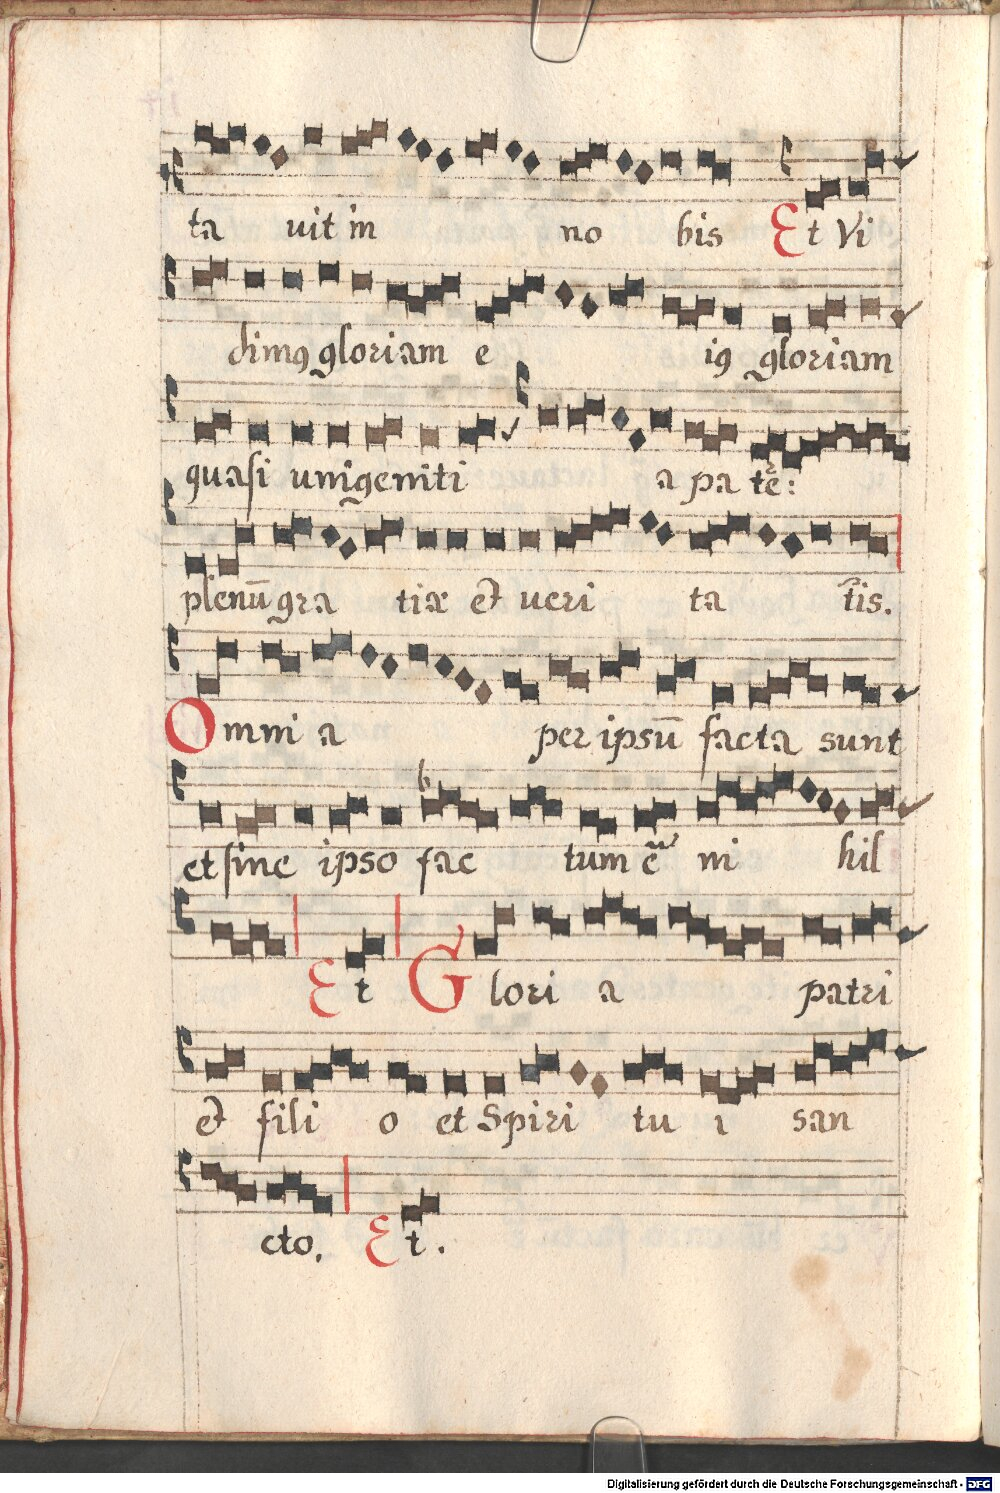 ta uit in no bis Et Vi
dimꝰ gloriam e iꝰ gloriam
quasi unigeniti a pa tē:
plenū gra tiæ et ueri ta tis.
Omni a per ipsū facta sunt
et sine ipso fac tum ē ni hil
Et Glori a patri
et fili o et Spiri tu i san
cto. Et.
Digitalisierung gefördert durch die Deutsche Forschungsgemeinschaft - DFG